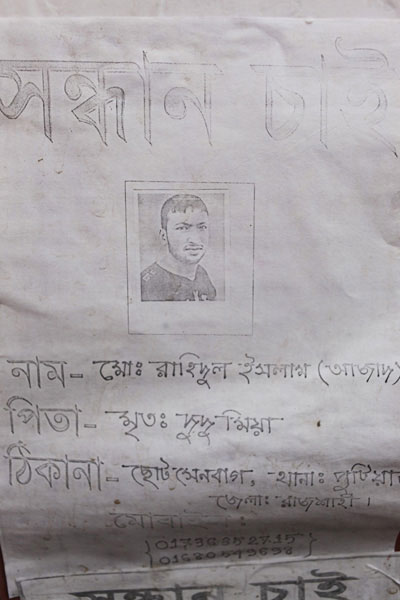 সন্ধান চাই
নাম- মোঃ রাহিদুল ইসলাম (আজাদ)
পিতা- মৃতঃ দুদু মিয়া
ঠিকানা- ছোট সেনবাগ, থানাঃ
জেলাঃ রাজশাহী।
মোবাইল:
সন্ধান চাই